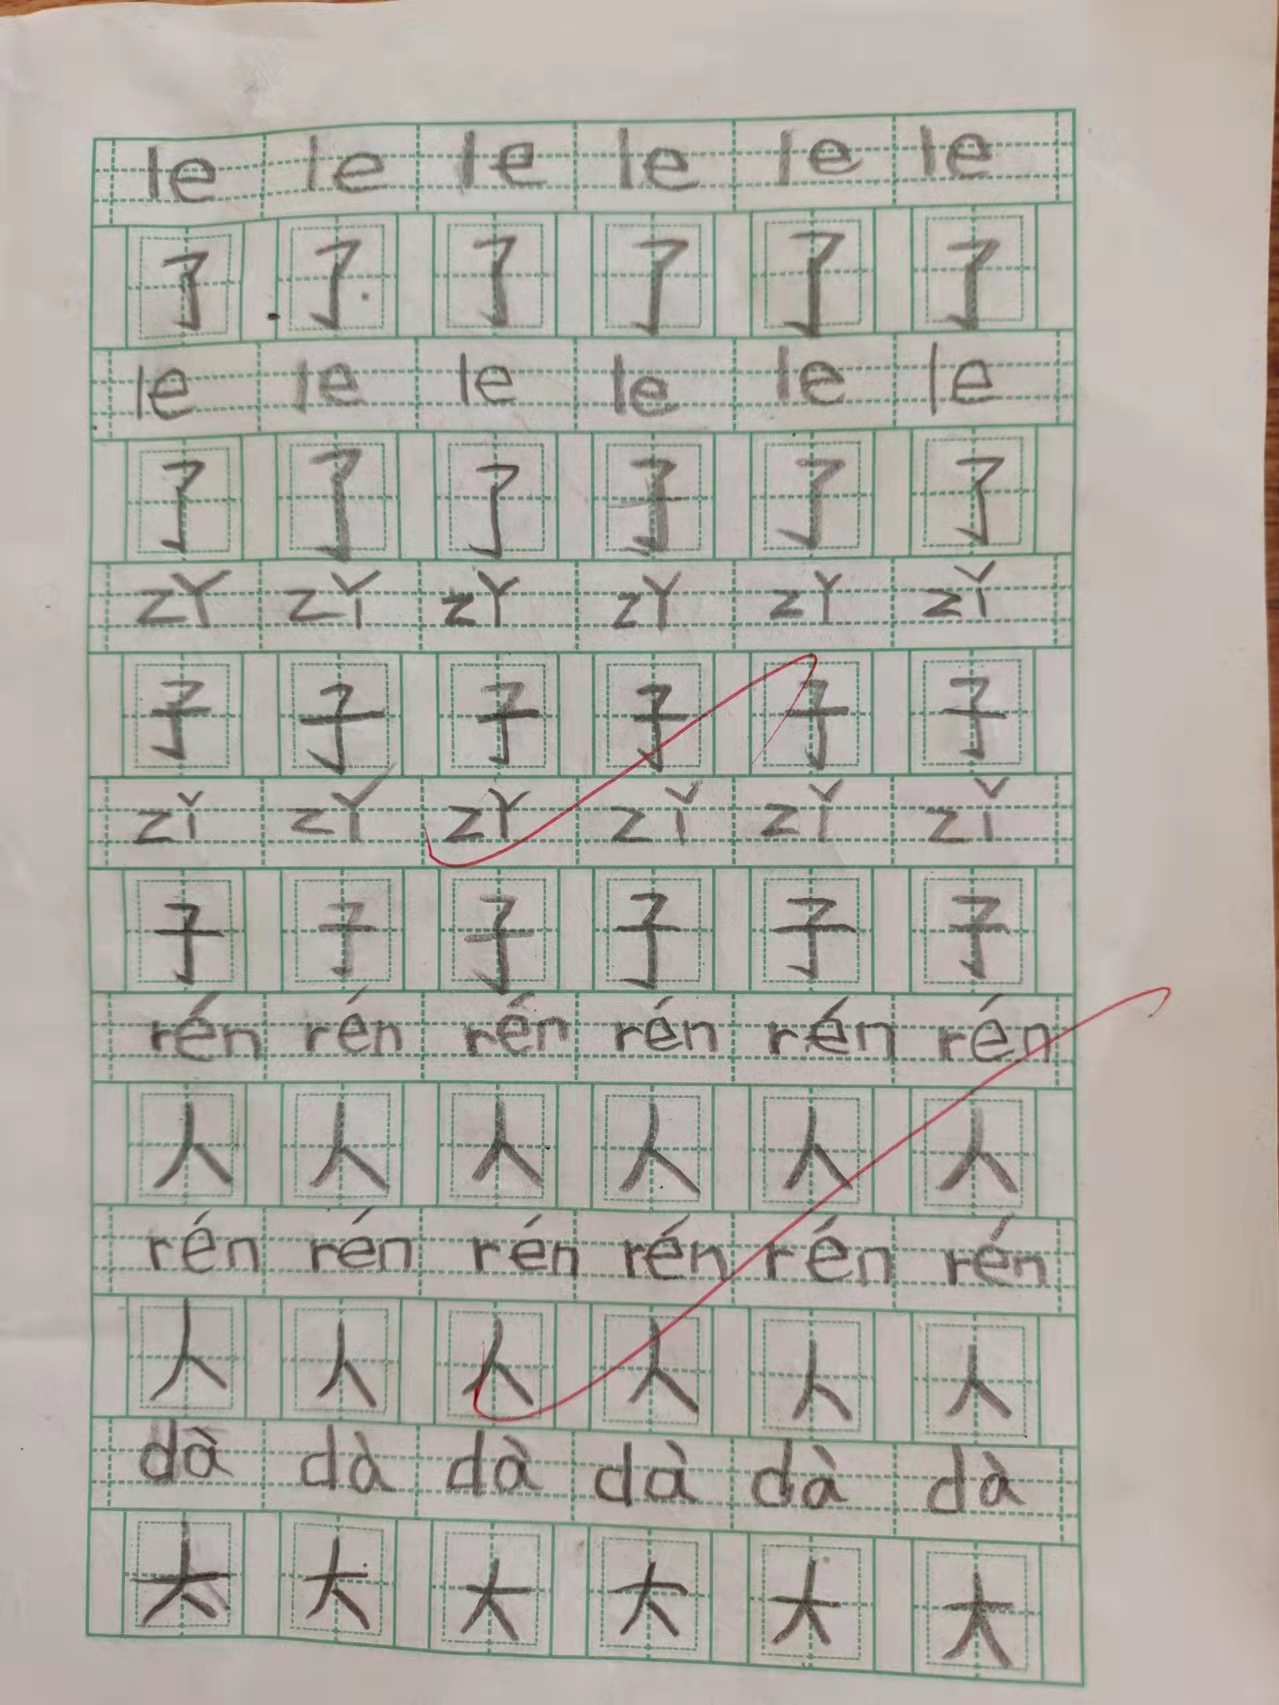 le le le le le le
了 了 了 了 了 了
le le le le le le
了 了 了 子 了 了
zǐ zǐ zǐ zǐ zǐ zǐ
子 子 子 子 子 子
zǐ zǐ zǐ zǐ zǐ zǐ
子 子 子 子 子 子
rén rén rén rén rén rén
人 人 人 人 人 人
rén rén rén rén rén rén
人 人 人 人 人 人
dà dà dà dà dà dà
大 大 大 大 大 大